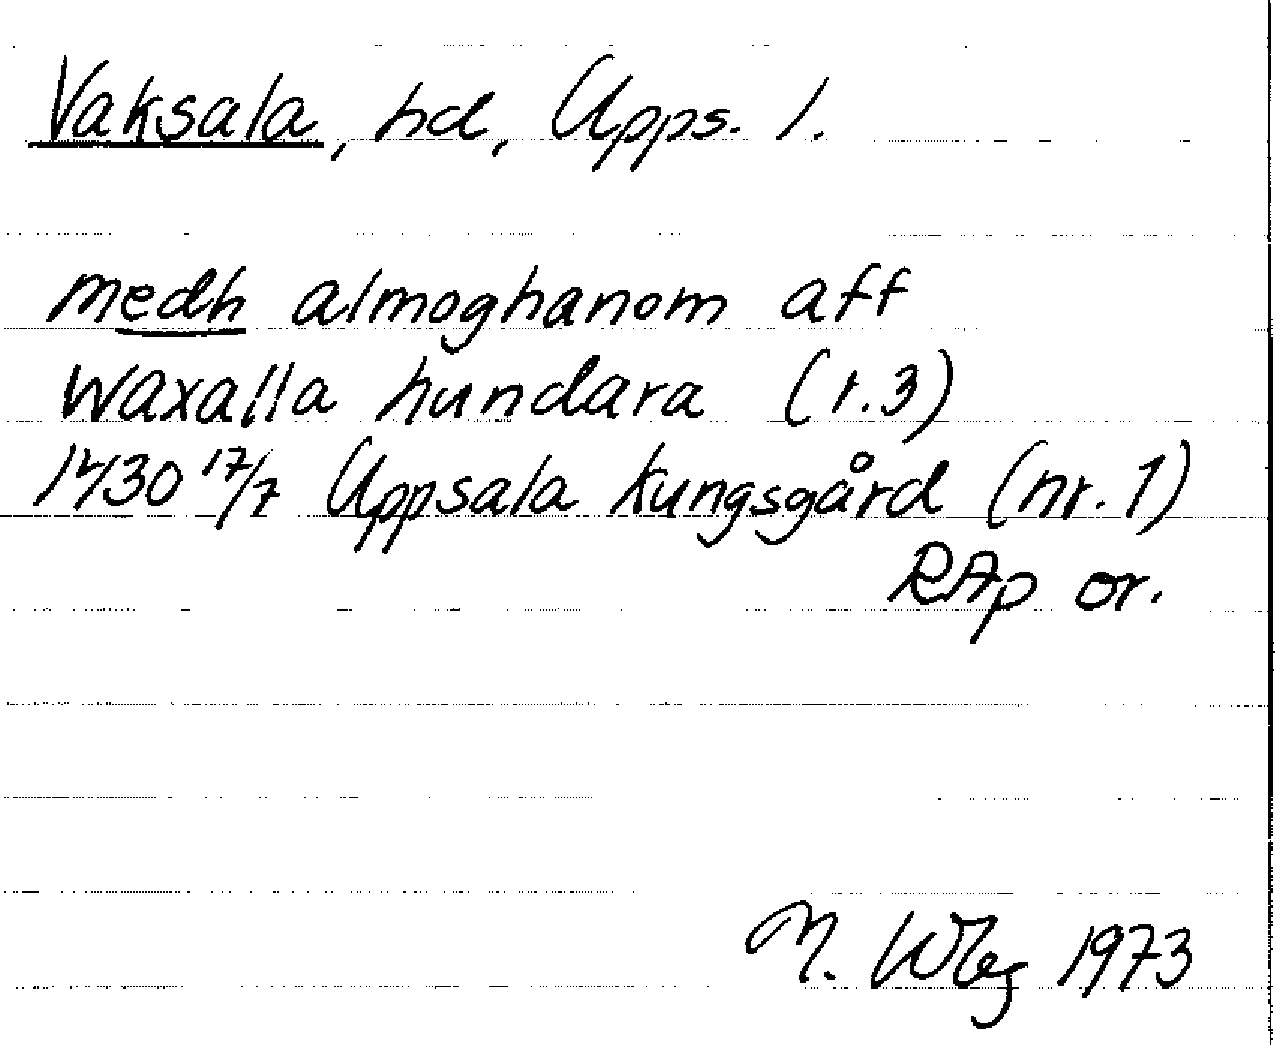 Vaksala, hd, Upps. l.
medh almoghanom aff
Waxalla hundara (r.3)
1430 17/7 Uppsala kungsgård (nr. 1)
RAp or.
M. Wbg 1973